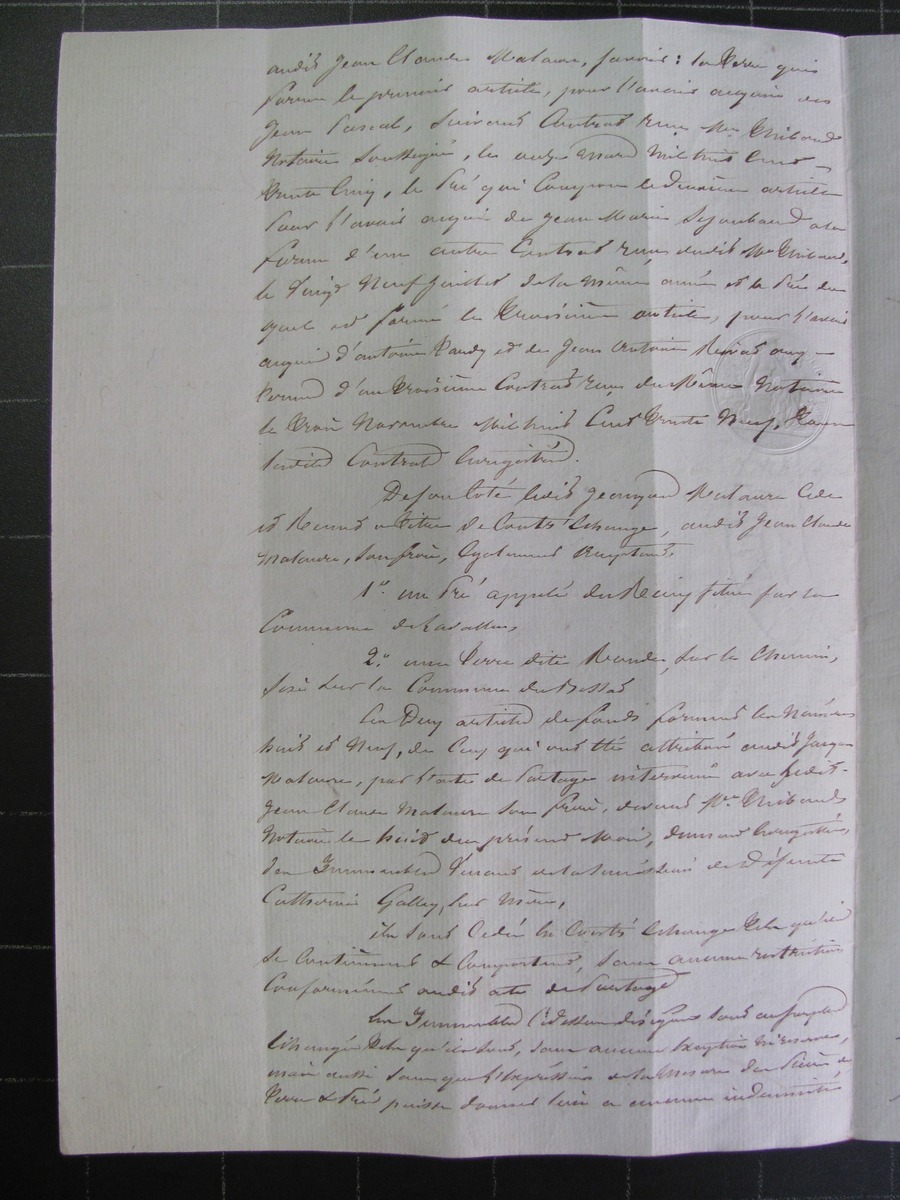 audit Jean Claude Mataure, savoir : la terre qui
forme le premier article, pour l'avoir acquise des
Jean Pascal, suivant Contrat reçu Me Thibaud
Notaire soussigné, les onze mars mil huit Cent
trente Cinq, le Pré qui Compose le deuxième article
pour l'avoir acquis de Jean Marie a la
forme d'un autre Contrat reçu dudit Me Thibaud,
le Vingt Neuf juillet de la même année et le Pré du
quel est formé le troisième article, pour l'avoir
acquis d'antoine et de Jean Antoine aux
termes d'un troisième Contrat reçu du Même Notaire
le trois Novembre Mil huit Cent trente Neuf,
lesdits Contrats Enregistrés.
De son Coté ledit Jacques Mataure Cède
et Remet a titre de Contr'Echange, audit Jean Claude
Mataure, son frère, Egalement acceptant,
1°. un Pré appelé du situé sur la
Commune de Lavalla,
2°. une terre dite sur le Chemin,
sise sur la Commune du Bessat
Ces Deux articles de fonds forment les Numéros
huit et Neuf, de Ceux qui ont été attribués audit Jacques
Mataure, par l'acte de Partage intervenu avec ledit
Jean Claude Mataure son frère, devant Me Thibaud
Notaire le huit du présent Mois, dument Enregistré,
des Immeubles Venant de la succession de Défunte
Catherine Galley, leur Mère,
ils sont Cédés En Contr'Echange tels qu'ils
se Contiennent & Comportent, sans aucune restriction
Conformément audit acte de Partage
Les Immeubles Ci dessus désignés sont au surplus
Echangés tels qu'ils sont, sans aucune Exception ni réserve,
mais aussi sans que l'Expression de la Mesure des Pièces de
terre & Pré puisse donner lieu a aucune indemnité